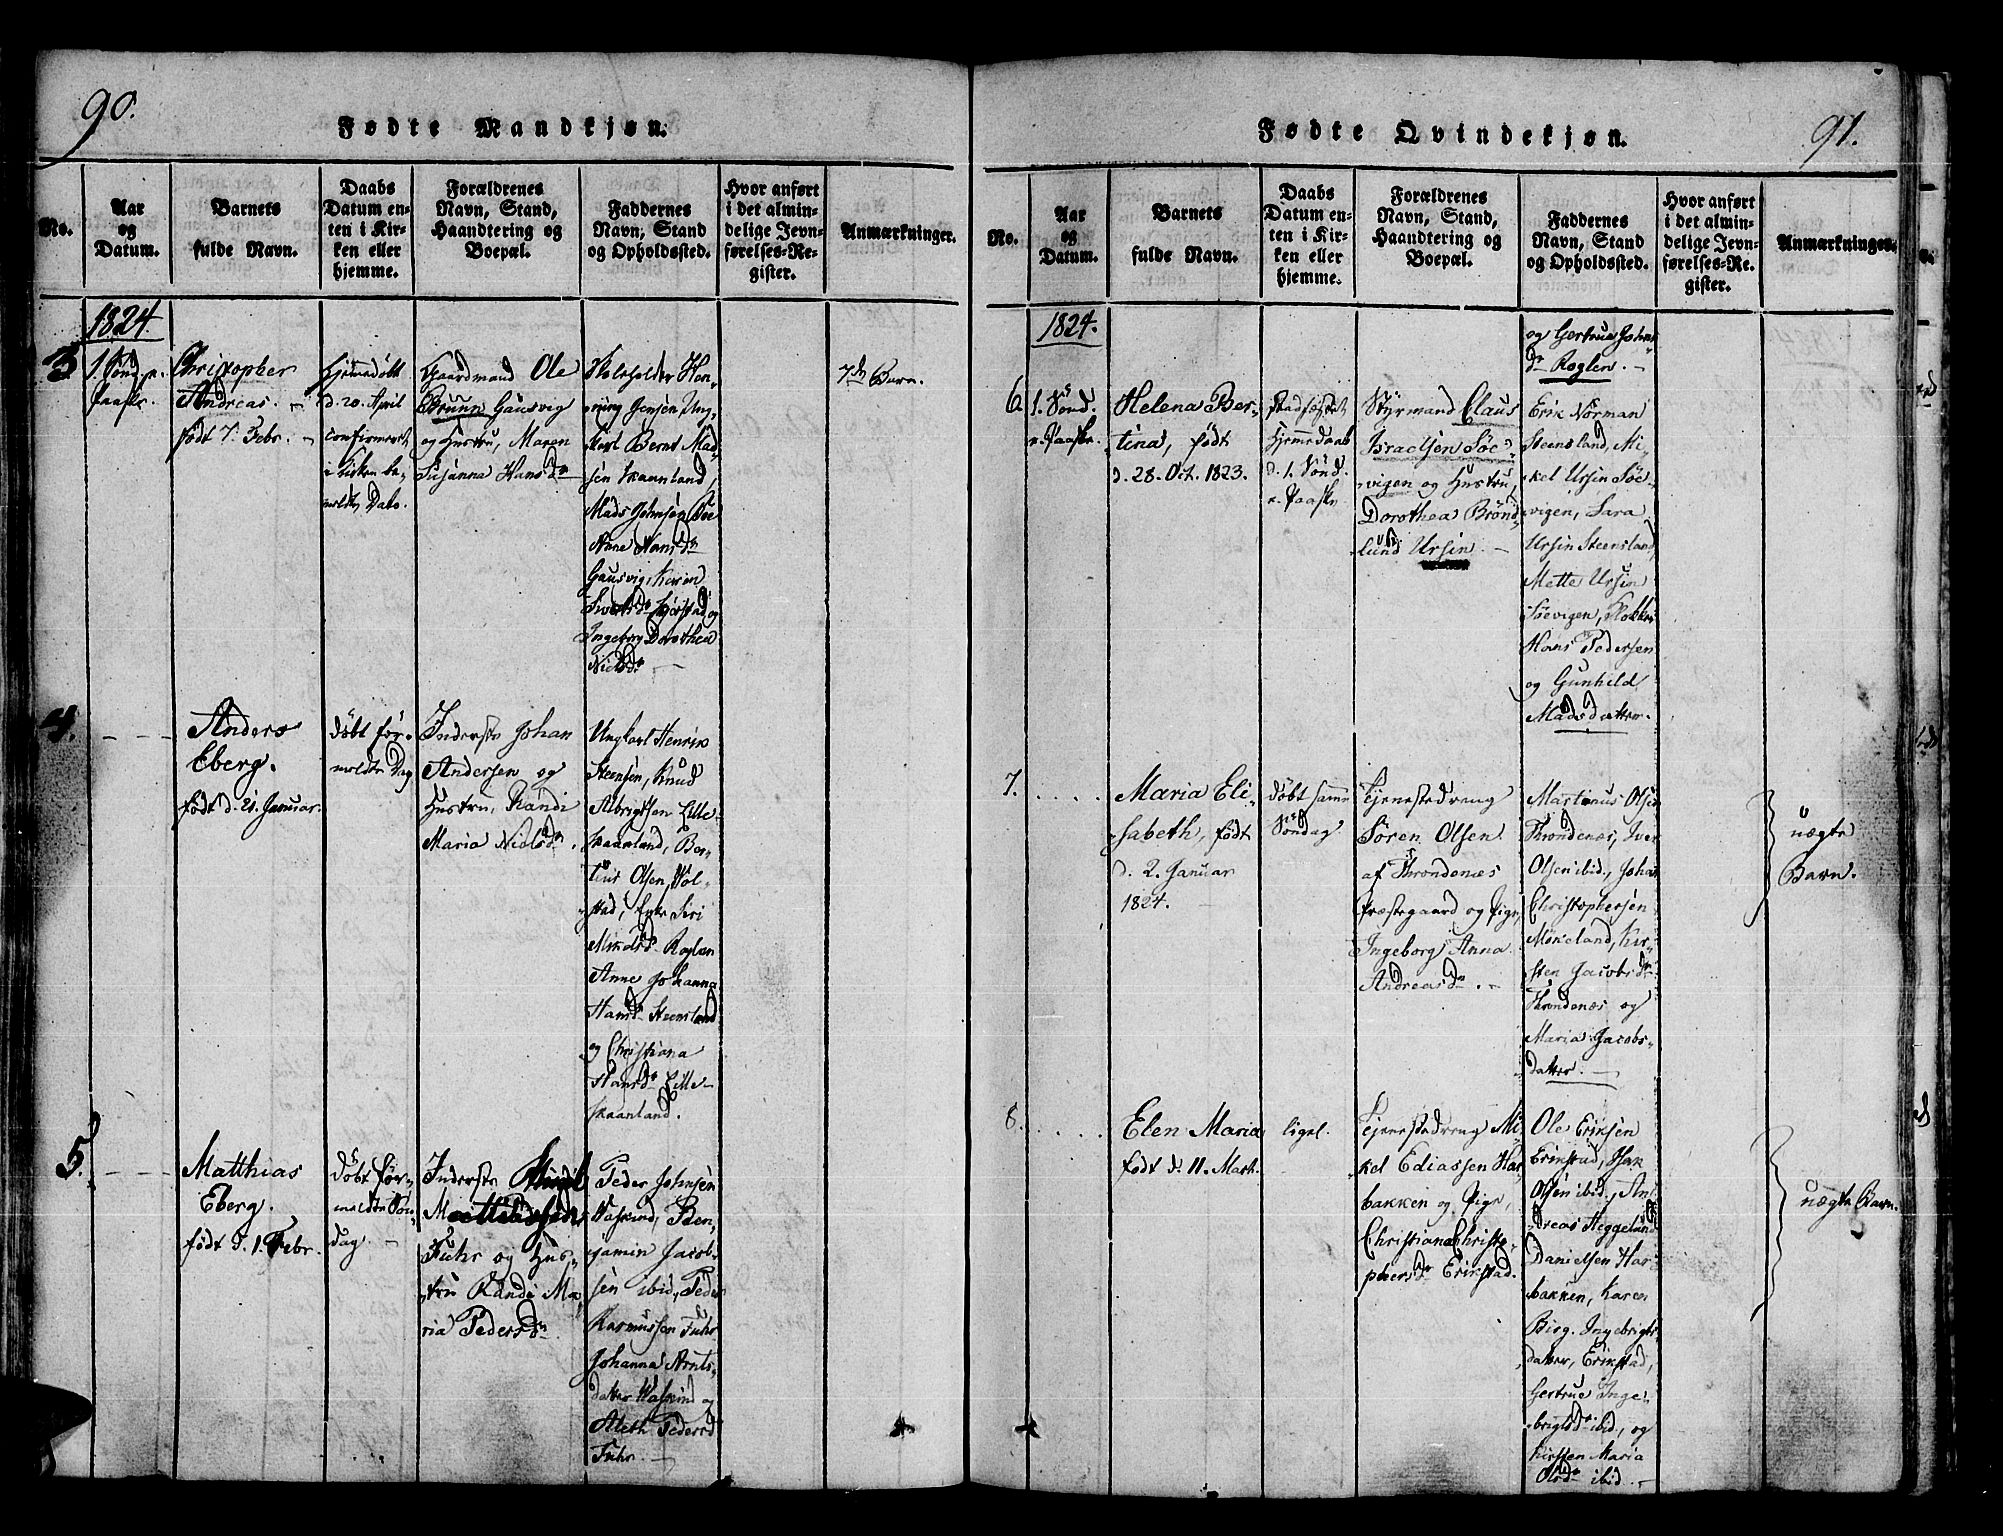 90.
Fødte Mandkjøn.
No.
Aar
og
Datum.
Barnets
fulde Navn.
Daabs
Datum en-
ten i Kir-
ken eller
hjemme.
Forældrenes
Navn, Stand,
Haandtering og
Boepæl.
Faddernes
Navn, Stand
og Opholdssted.
Hvor anført
i det almin-
delige Jevn-
førelses-Re-
gister.
Anmærkninger.
1824
3.
1. Sönd. e.
Paaske.
Christopher
Andreas. –
født 7. Febr. –
Hjemedöbt
d. 20. April
confirmeret
i Kirken be-
meldte Dato.
Gaardmand Ole
Brunn Gausvig
og Hustru, Maren
Susanna Hansd.
Skoleholder Hen-
ning Jensen, Ung-
karl Bernt Mad-
sen Skaanland,
Mads Johnsen
Anne Hansd.
Gausvig, Karen
Sivertsd.
Ingeborg Dorothea
Nielsd. –
7de Barn.
4.
Anders
Eberg.
født d. 21. Januar.
döbt før-
meldte Dag
Inderste Johan
Andersen og
Hustru, Randi
Maria Nielsd.
Ungkarl Henrik
Steensen, Knud
Albrigtsen Lille-
skaanland, Ber-
tius Olsen,
stad, Enke Siri
Roglen
Anne Johanna
Hansd. Steensland
og Christiana
Hansd. Lille-
skaanland.
5.
Matthias
Eberg.
født d. 1. Febr.
döbt før-
meldte Søn-
dag –
Inderste
Fuhr og Hus-
tru Randi Ma-
ria Pedersd.
Peder Johnsen
Waskind, Ben-
jamin Jacob-
sen ibid, Peder
Rasmussen Fuhr
Johanna Arnts-
datter Waskind og
Aleth Pedersd
Fuhr. –
91.
Fødte Qvindekjøn.
No.
Aar
og
Datum.
Barnets
fulde Navn.
Daabs
Datum en-
ten i Kir-
ken eller
hjemme.
Forældrenes
Navn, Stand,
Haandtering og
Boepæl.
Faddernes
Navn, Stand
og Opholdssted.
Hvor anført
i det almin-
delige Jevn-
førelses-Re-
gister.
Anmærkninger.
1824.
og Gertrue Johns-
dr Roglen. –
6.
1. Sönd.
e. Paaske.
Helena Ber-
tina, født
d. 28. Oct. 1823.
stadfæstet
Hjemmedaab
d. 1. Sönd.
e. Paaske
Styrmand Claus
Israelsen Söe-
vigen og Hustru,
Dorothea Brönd-
lund Ursin. –
Erik Norman
Steensland, Mi-
kel Ursin Söe-
vigen, Sara
Ursin Steensland,
Mette Ursin
Söevigen, Klokker
Hans Pedersen
og Gunhild
Madsdatter.
7.
Maria Eli-
sabeth, født
d. 2. Januar
1824.
döbt samme
Söndag
Tjenestedreng
Sören Olsen
af Throndenæs
Præstegaard og Pige,
Ingeborg Anna
Andreasd. –
Martinus Olsen
Throndenæs, Iver
Olsen ibid., Johan
Christophersen
Møneland, Kir-
sten Jacobsd.
Throndenæs og
Maria Jacobs-
datter. –
uægte
Barn.
8.
Elen Maria
født d. 11. Marts.
ligel.
Tjenestedreng Mi-
kel Ediassen Har-
bakken og Pige,
Christiana Christo-
phersd. Erikstad.
Ole Eriksen
Erikstad, Isak
Olsen ibid., An-
dreas Heggeland
Danielsen Har-
bakken, Karen
Birg. Ingebrigts-
datter, Erikstad,
Gertrue Inge-
brigtsd. ibid., og
Kirsten Maria
Olsd. ibid. –
uægte Barn.